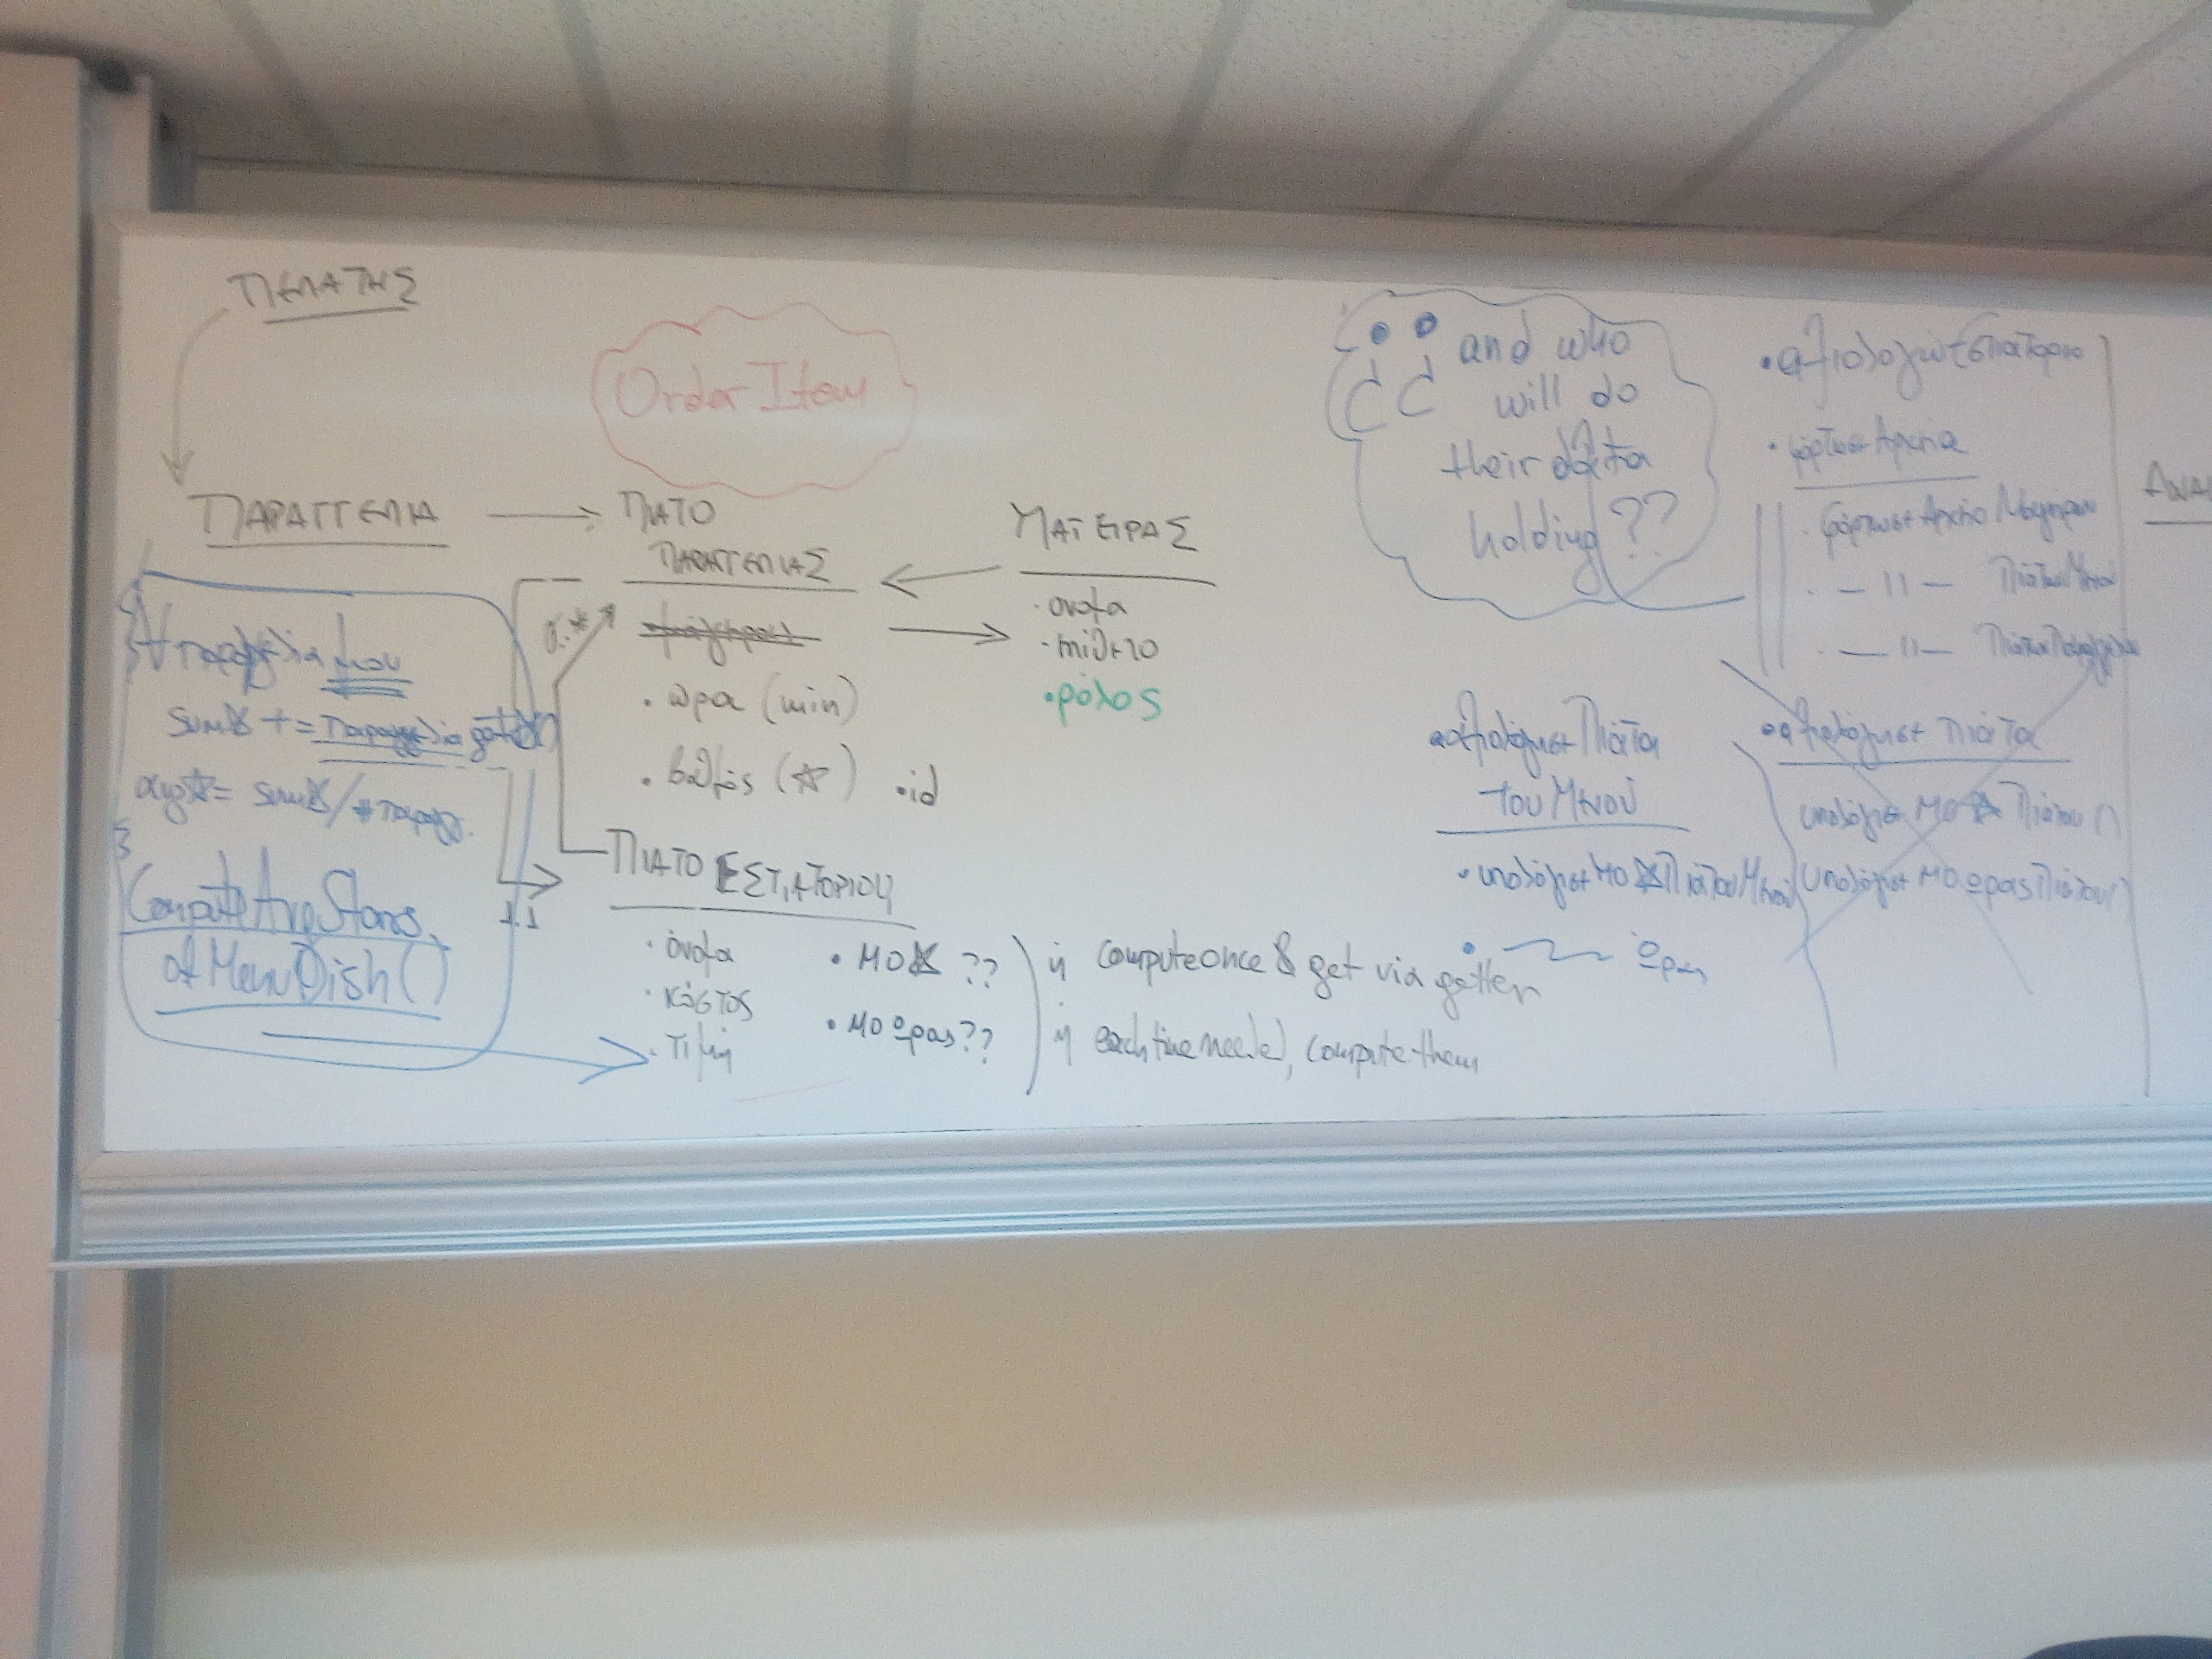 ΠΕΛΑΤΗΣ
Order Item
ΠΑΡΑΓΓΕΛΙΑ
ΠΙΑΤΟ
ΠΑΡΑΓΓΕΛΙΑΣ
· ώρα (min)
· βαθμός (☆) · id
0..*
ΜΑΓΕΙΡΑΣ
· όνομα
· επίθετο
· ρόλος
∀ παραγγελία μου
sum☆ += παραγγελία get☆()
avg☆ = sum☆/#παραγγ.
}
Compute Avg Stars
of Menu Dish ()
1.1
ΠΙΑΤΟ ΕΣΤΙΑΤΟΡΙΟΥ
· όνομα
· κόστος
· τιμή
· ΜΟ☆ ??
· ΜΟ ώρας??
ή compute once & get via getter
ή each time needed, compute them
and who
will do
their data
holding ??
· αξιολόγησε Εστιατόριο
· φόρτωσε Αρχεία
· φόρτωσε Αρχείο Μαγείρων
· — 11 — Πιάτων Μενού
· — 11 — Πιάτα Παραγγελίας
· αξιολόγησε Πιάτα
του Μενού
· υπολόγισε ΜΟ☆ Πιάτου Μενού
· ώρας
· αξιολόγησε πιάτα
υπολόγισε ΜΟ ☆ Πιάτου ()
υπολόγισε ΜΟ ώρας Πιάτου()